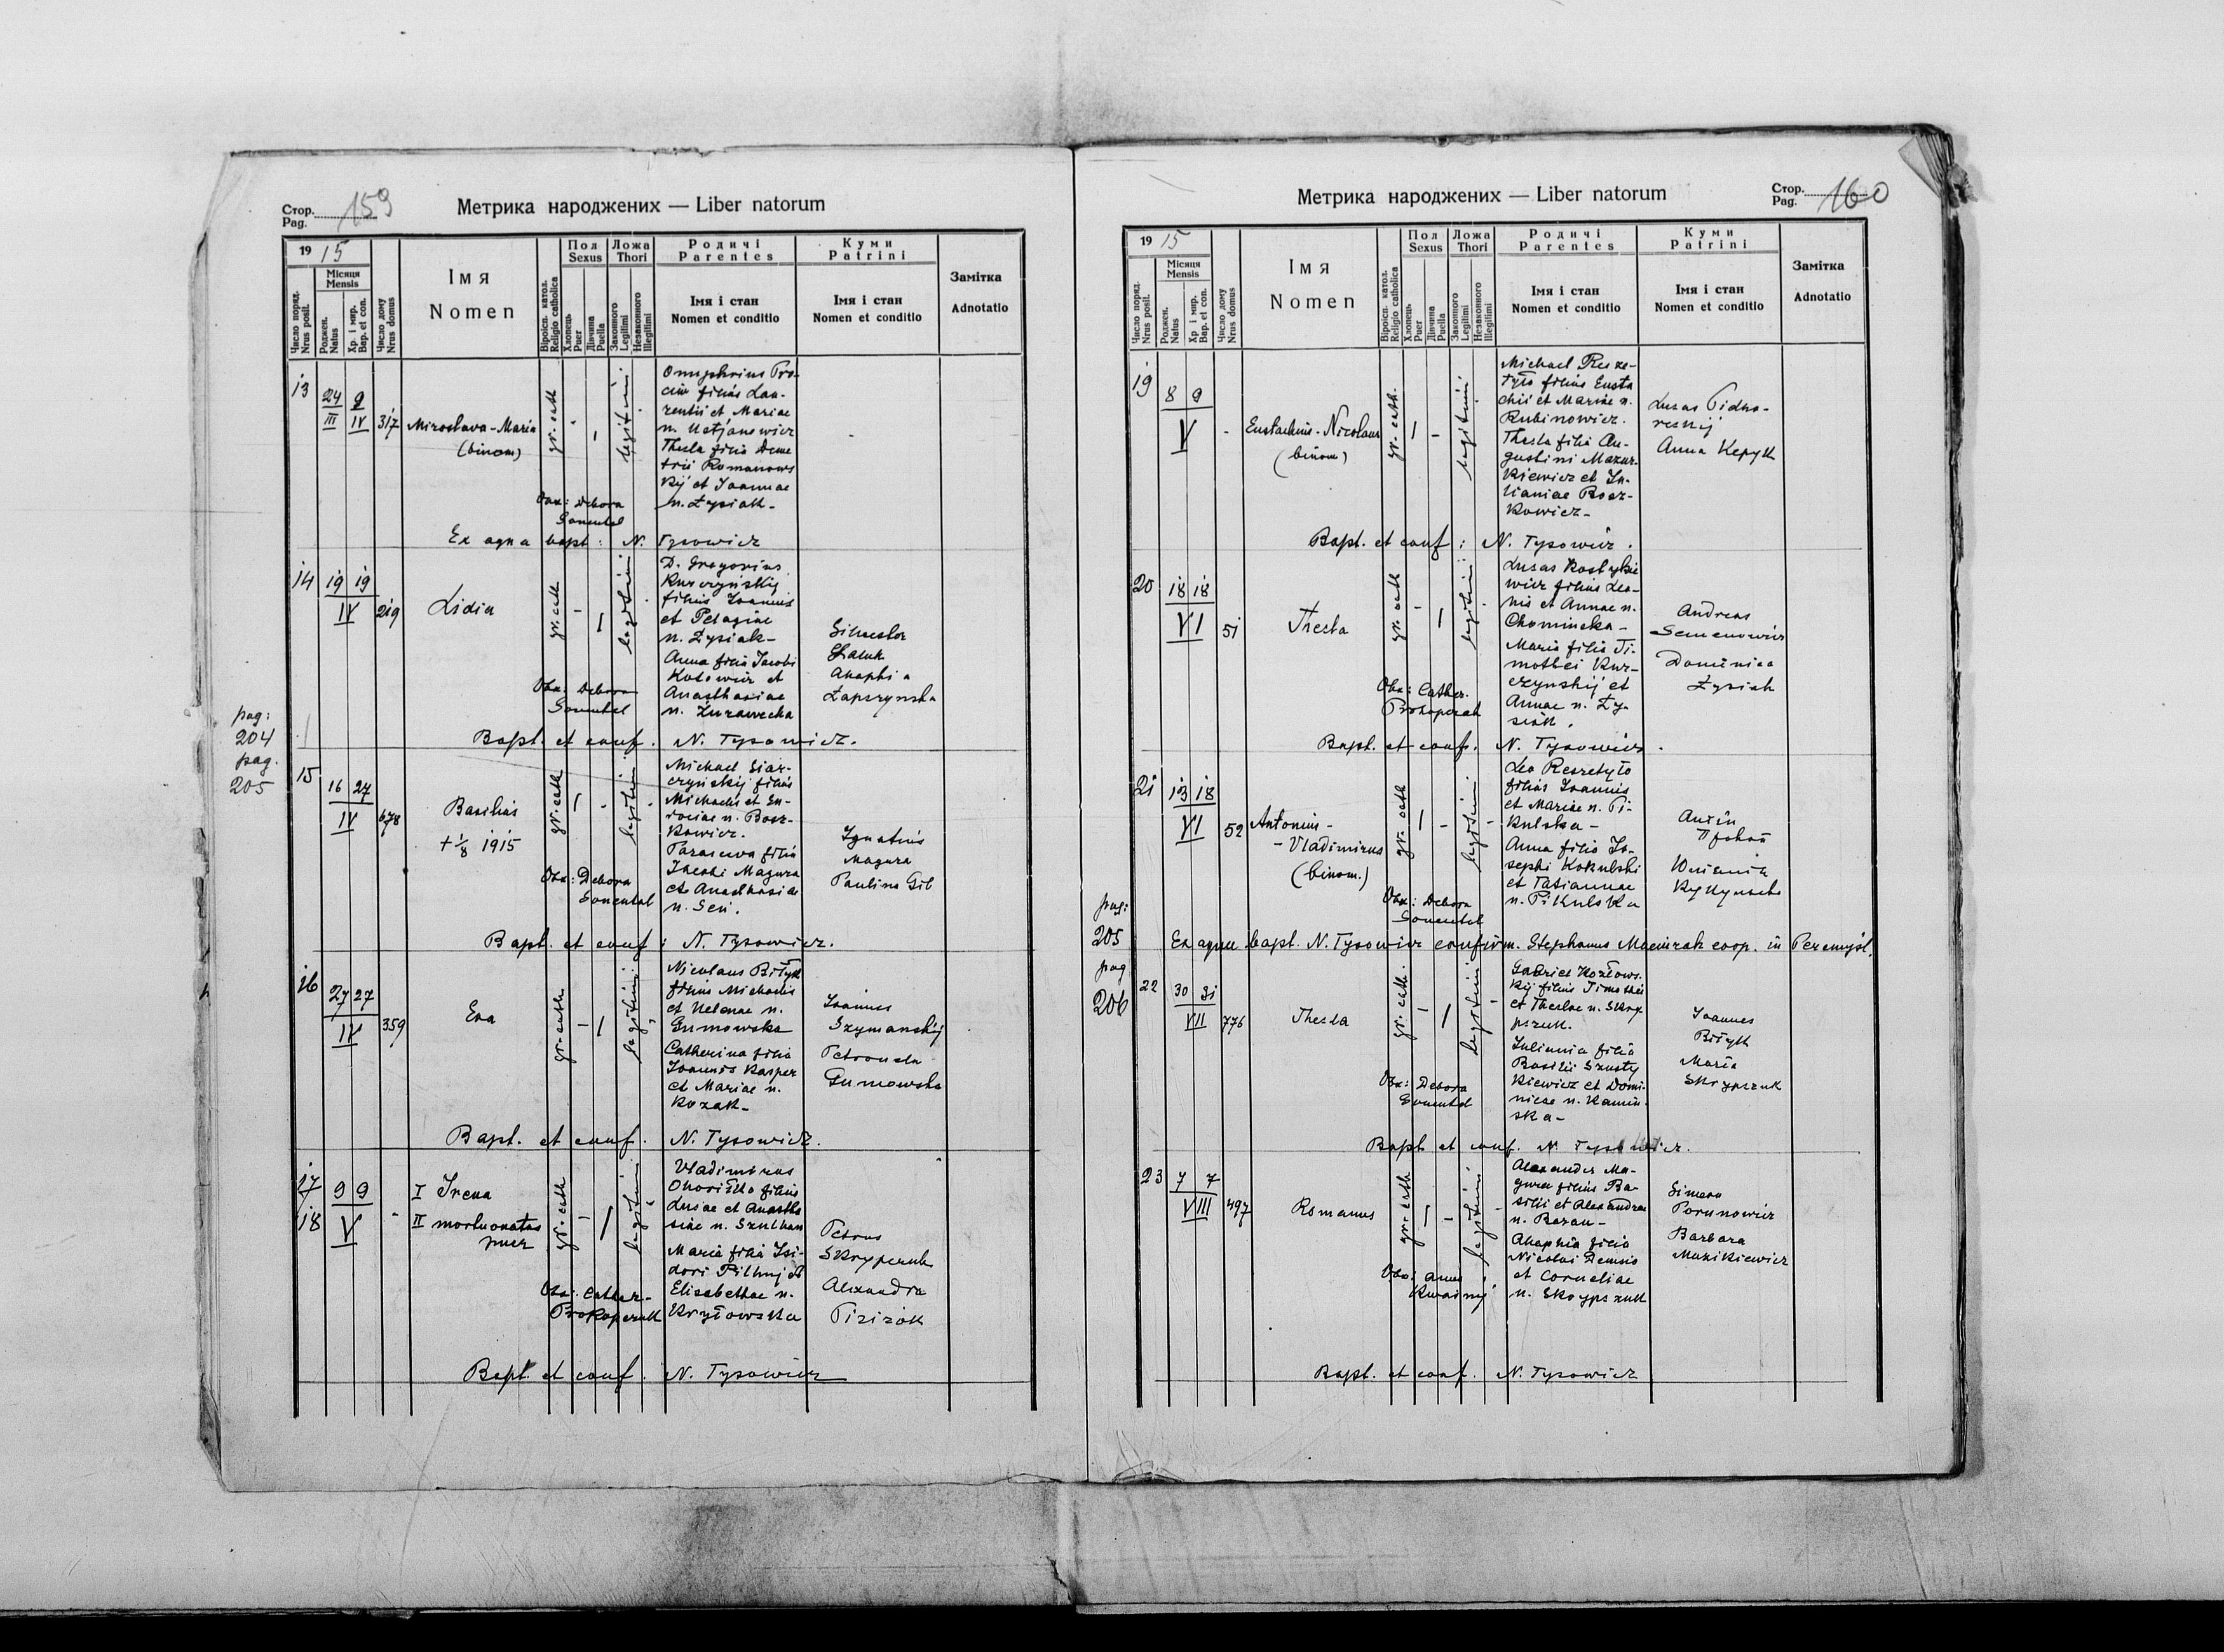 Стор. Pag. 159
Метрика народжених — Liber natorum
19 15
Місяця Mensis
Число поряд. Nrus posit.
Роджен. Natus
Хр. і мир. Bap. et con.
Число дому Nrus domus
Імя
Nomen
Віроісп. катол. Religio catholica
Пол Sexus
Хлопець Puer
Дівчина Puella
Ложа Thori
Законного Legitimi
Незаконного Illegitimi
Родичі
Parentes
Імя і стан
Nomen et conditio
Куми
Patrini
Імя і стан
Nomen et conditio
Замітка
Adnotatio
13
24 III
9 IV
317
Miroslava-Maria
(binom)
gr. cath
legitimi
Onuphrius Pro-
ciw filius Lau-
rentii et Mariae
n. Ustjanowicz
Thecla filia Deme
trii Romanows
kij et Joannae
n. Łysiak-
Obs: Debora
Sonental
Ex aqua bapt: N. Tysowicz
14
19 19
IV
219
Lidia
gr. cath
legitimi
D. Gregorius
Kurczyńskij
filius Joannis
et Pelagiae
n. Łysiak-
Anna filia Jacobi
Kotowicz et
Anasthasiae
n. Żurawecka
Silvester
Hałuk
Ahaphia
Łapczynska
Obs. Debora
Sonental
Bapt. et conf. N. Tysowicz.
pag:
204
pag.
205
15
16 27
IV
678
Basilius
+ 1/8 1915
gr. cath
legitimi
Michael Siar-
czyńskij filius
Michaelis et Eu-
rociae n. Bosz-
kowicz.
Parascewa filia
Jacobi Magura
et Anasthasiae
n. Sen.
Ignatius
Magura
Paulina Gił
Obs: Debora
Sonental
Bapt. et conf: N. Tysowicz.
16
27 27
IV
359
Eva
gr. cath
legitimi
Nicolaus Biłyk
filius Michaelis
et Helenae n.
Gumowska
Catherina filia
Joannis Kasper
et Mariae n.
Kozak-
Joannes
Szymanskij
Petronela
Gumowska
Bapt. et conf. N. Tysowicz.
17
18
9 9
V
I Irena
II mortuonatus
puer
gr. cath
legitimi
Vladimirus
Onoriszko filius
Lucae et Anastha
siae n. Szulhan
Maria filia Isi-
dori Pilhuj et
Elisabethae n.
Kozłowska
Petrus
Skrypczuk
Alexandra
Obs. Cather-
Prokopczuk
Bapt. et conf. N. Tysowicz
Стор. Pag. 160
Метрика народжених — Liber natorum
19 15
Місяця Mensis
Число поряд. Nrus posit.
Роджен. Natus
Хр. і мир. Bap. et con.
Число дому Nrus domus
Імя
Nomen
Віроісп. катол. Religio catholica
Пол Sexus
Хлопець Puer
Дівчина Puella
Ложа Thori
Законного Legitimi
Незаконного Illegitimi
Родичі
Parentes
Імя і стан
Nomen et conditio
Куми
Patrini
Імя і стан
Nomen et conditio
Замітка
Adnotatio
19
8 9
V
Eustachius-Nicolaus
(binom)
gr. cath.
legitimi
Michael Resze-
tyło filius Eusta
chii et Mariae n.
Rubinowicz.
Thecla filia Au-
gustini Mazur-
kiewicz et Ju-
lianiae Bosz-
kowicz-
Lucas Pidho-
reckij
Anna Kepyk
Bapt. et conf: N. Tysowicz.
20
18 18
VI
51
Thecla
gr. cath
legitimi
Lucas Kostyke
wicz filius Leo-
nis et Annae n.
Chominska-
Maria filia Ti-
mothei Kur-
czynskij et
Annae n. Ły-
siak.
Andreas
Semenowicz
Dominica
Łysiak
Obs: Cather.
Prokopczuk
Bapt. et conf. N. Tysowicz.
21
13 18
VI
52
Antonius-
-Vladimirus
(binom.)
gr. cath
legitimi
Leo Reszetyło
filius Joannis
et Mariae n. Pi-
kulska-
Anna filia Jo-
sephi Kokulski
et Tatiannae
n. Pikulska
Obs: Debora
Sonental
pag:
205
Ex aqua bapt. N. Tysowicz confirm. Stephanus Maciurak coop. in Peremyśl.
pag
206
22
30 31
VII
776
Thecla
gr. cath.
legitimi
Gabriel Kozłows.
kij filius Timothei
et Theclae n. Skry
pczuk.
Juliania filia
Basilii Szusty
kiewicz et Domi-
nicae n. Kamin-
ska-
Joannes
Biłyk
Maria
Skrypczuk
Obs: Debora
Sonental
Bapt et conf. N. Tysowicz.
23
7 7
VIII
497
Romanus
gr. cath
legitimi
Alexander Ma-
gura filius Ba-
silii et Alexandrae
n. Baran-
Ahaphia filia
Nicolai Demsio
et Corneliae
n. Skrypczuk
Simeon
Porunowicz
Barbara
Muzikiewicz
Obs: Anna
Bapt. et conf. N. Tysowicz